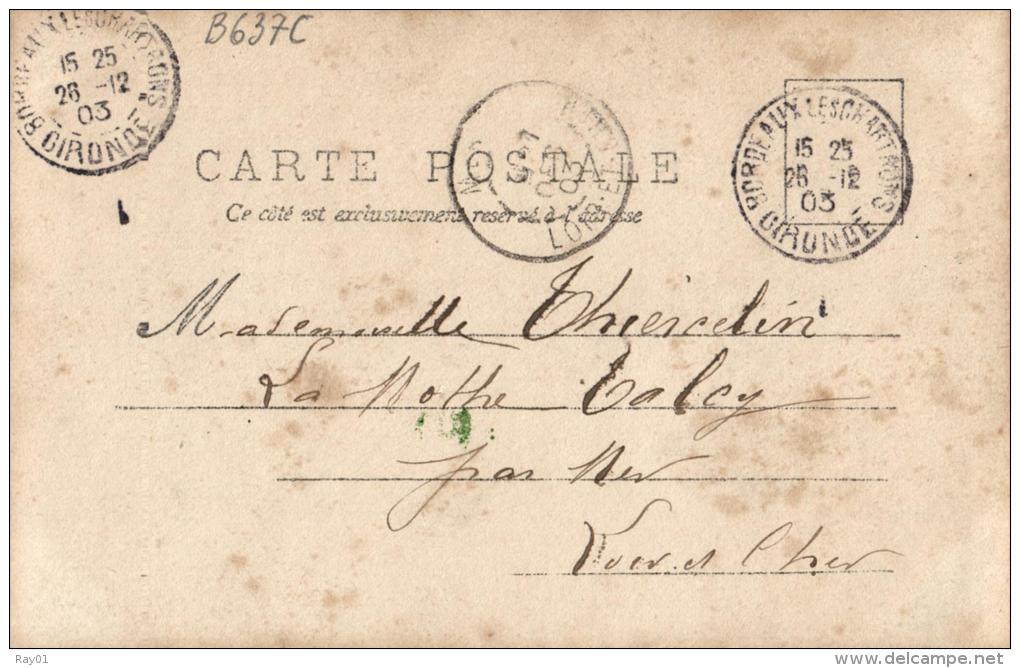 B637C
BORDEAUX LES CHARTRONS
15 25
26 -12
03
GIRONDE
BORDEAUX LES CHARTRONS
15 25
26 -12
03
GIRONDE
CARTE POSTALE
Ce côté est exclusivement réservé à l'adresse
Mademoiselle Thiercelin
La Mothe Talcy
par Mer
Loir et Cher
Ray01
www.delcampe.net